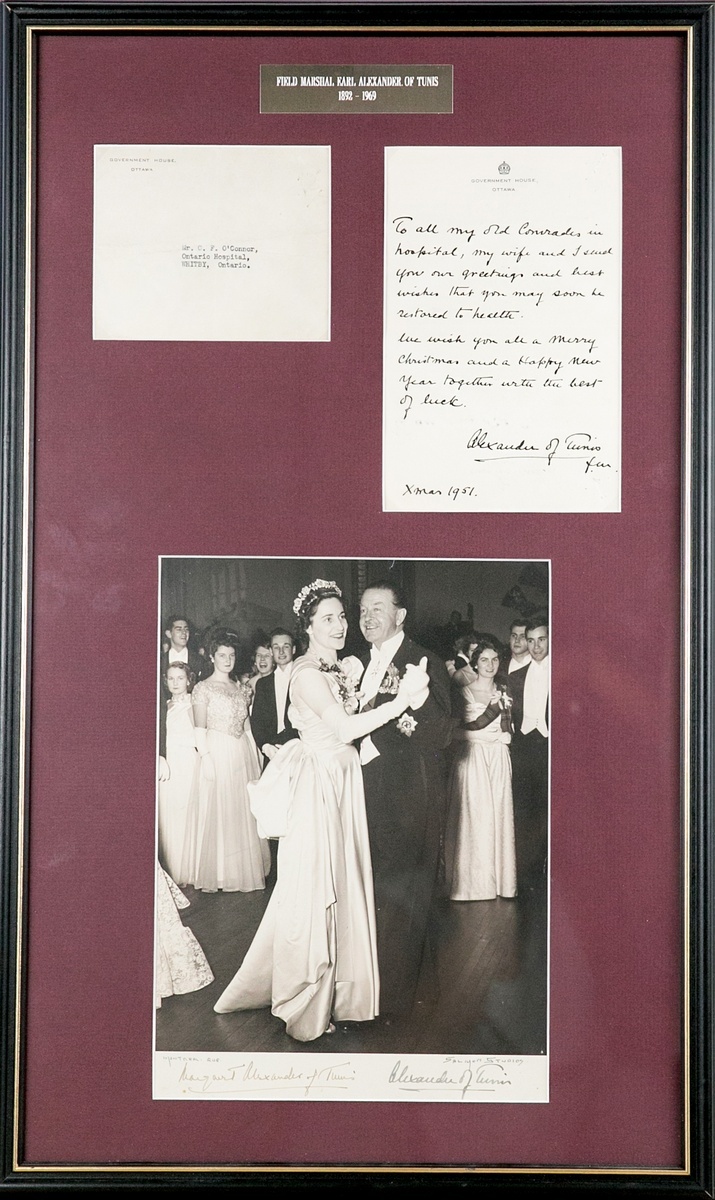 FIELD MARSHAL EARL ALEXANDER OF TUNIS
1892 - 1969
GOVERNMENT HOUSE,
OTTAWA.
Mr. C. F. O'Connor,
Ontario Hospital,
WHITBY, Ontario.
GOVERNMENT HOUSE,
OTTAWA.
To all my old Comrades in
hospital, my wife and I send
you our greetings and best
wishes that you may soon be
restored to health.
We wish you all a Merry
Christmas and a Happy New
Year together with the best
of luck.
Alexander of Tunis
f.m.
Xmas 1951.
Margaret Alexander of Tunis
Alexander of Tunis